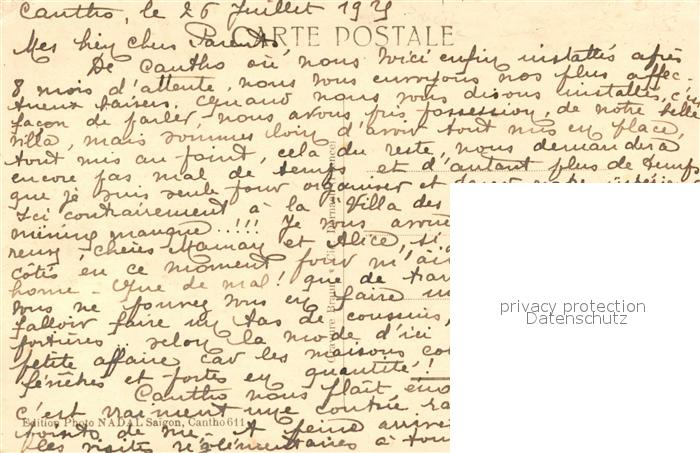 Cantho, le 26 Juillet 1929
CARTE POSTALE
Mes bien chers Parents
De Cantho où nous voici enfin installés après
8 mois d'attente, nous vous envoyons nos plus affec-
tueux baisers. Quand nous vous disons installés, c'est
façon de parler, nous avons pris possession, de notre belle
villa, mais sommes loin d'avoir tout mis en place,
tout mis au point, cela du reste, nous demandera
encore pas mal de temps et d'autant plus de temps
que je suis seule pour organiser et
Ici contrairement à la "Villa des
mining manque..!!! Je vous avoue
reux chères Maman et Alice, si
côtés en ce moment pour m'ai
home. Que de mal! que de tra
vous ne pouvez vous en faire un
falloir faire un tas de coussins,
portières.. selon la mode d'ici
petite affaire car les maisons co
fenêtres et portes en quantité!
Cantho nous plaît enco
c'est vraiment une contrée
Edition Photo NADAL Saigon, Cantho 611
points de vue. A peine arrivé
les visites réglementaires à tou
Gravure Braun & Cie,
privacy protection
Datenschutz